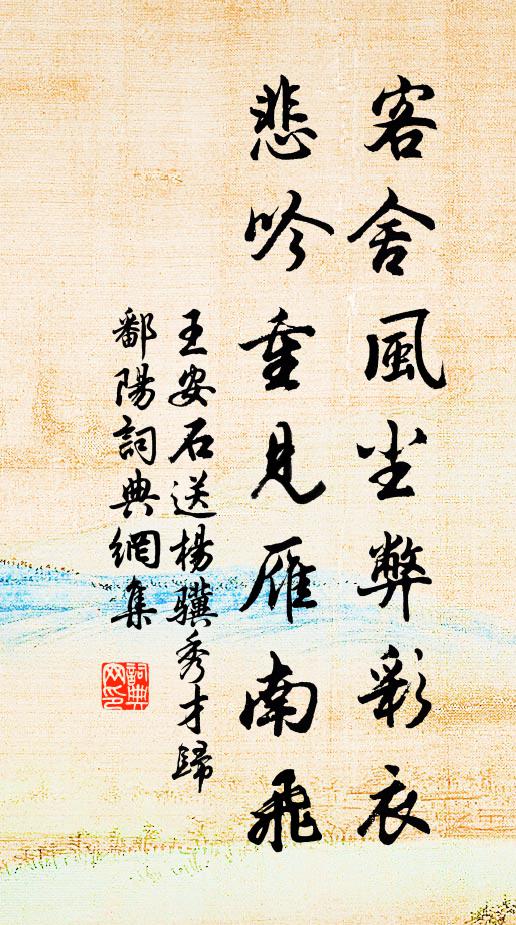 客舍風尘弊彩衣
悲吟重見雁南飛
王安石送楊驥秀才歸
鄱陽詞典網集
詞典
网印